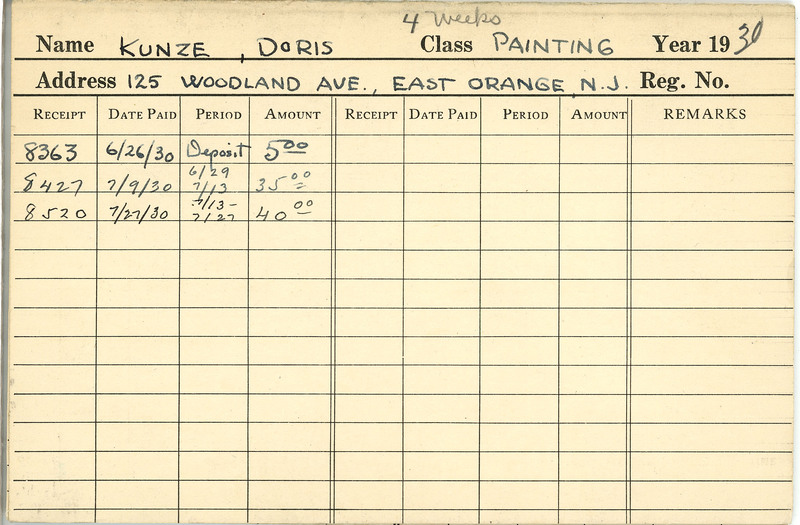 4 Weeks
Name KUNZE, DORIS Class PAINTING Year 1930
Address 125 WOODLAND AVE., EAST ORANGE N.J. Reg. No.
RECEIPT DATE PAID PERIOD AMOUNT RECEIPT DATE PAID PERIOD AMOUNT REMARKS
8363 6/26/30 Deposit 5.00
8427 7/9/30 6/29 7/13 35.00
8520 7/27/30 7/13- 7/27 40.00